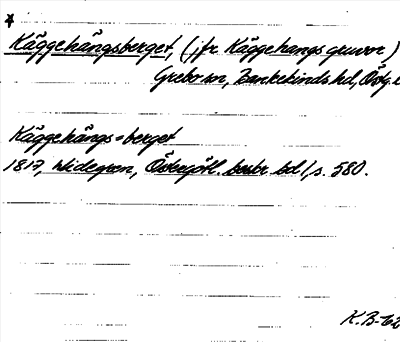 Käggehängsberget, (jfr Käggehängs gruvor)
Grebo sn, Bankekinds hd, Östg.
Käggehängs=berget
1817, Widegren, Östergötl. beskr bd 1 s. 580.
K.B-62